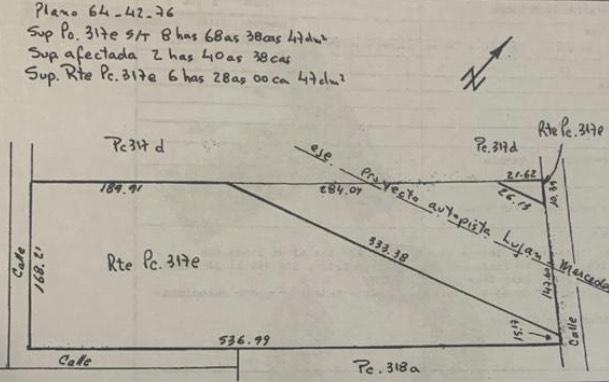 Plano 64-42-76
Sup Po. 317e s/T 8 has 68as 38cas 47dm²
Sup afectada 2 has 40as 38cas
Sup. Rte Pc.317e 6 has 28as 00ca 47dm²
N
Rte Pc.317e
Pc 317 d
Pc.317d
eje Proyecto autopista Lujan Mercedes
21.62
189.91
284.04
26.13
20.39
Calle
168.21
Rte Pc.317e
333.38
147.60
15.17
Calle
536.99
Calle
Pc.318a